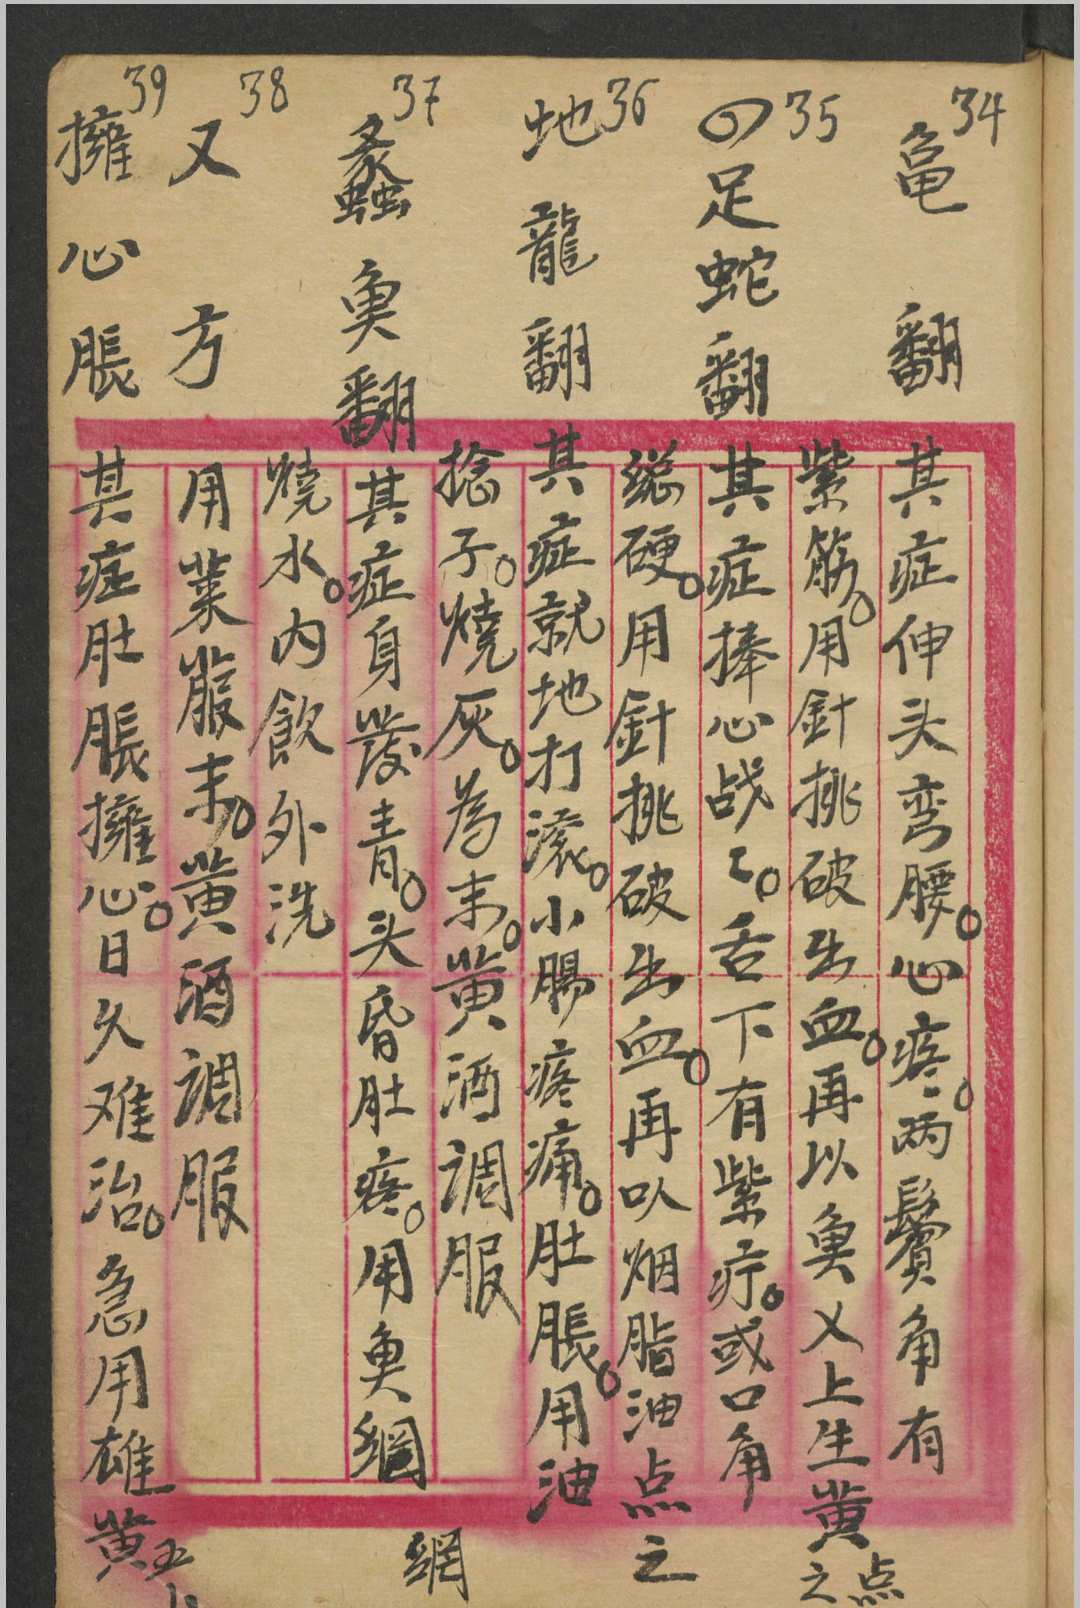 34
龟翻
其症伸头弯腰。心疼。两鬓角有
紫筋。用針挑破出血。再以奥乂上生黄
点之
35
の足蛇翻
其症捧心战〻。舌下有紫疔。或口角
総硬。用針挑破出血。再以烟脂油点之
36
地龍翻
其症就地打滚。小腸疼痛。肚脹。用油
捻子。燒灰。為末。黄酒調服
37
蟊魚翻
其症身發青。头昏肚疼。用魚網
網
燒水。内飲外洗
38
又方
用菜菔末。黄酒調服
39
擁心脹
其症肚脹擁心。日久难治。急用雄黄五